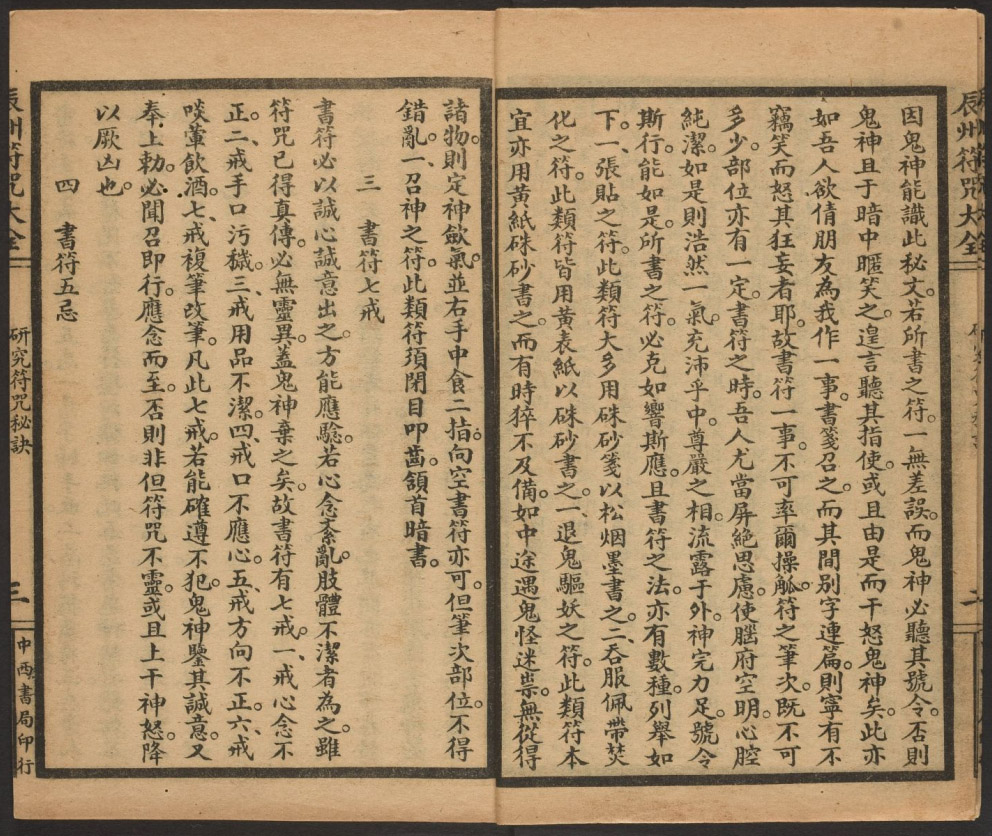 因鬼神能識此秘文。若所書之符。一無差誤。而鬼神必聽其號令。否則
鬼神且于暗中匿笑之。遑言聽其指使。或且由是而干怒鬼神矣。此亦
如吾人欲倩朋友為我作一事。書箋召之。而其間別字連篇。則寧有不
竊笑而怒其狂妄者耶。故書符一事。不可率爾操觚。符之筆次。既不可
多少。部位亦有一定。書符之時。吾人尤當屏絕思慮。使腦府空明。心腔
純潔。如是則浩然一氣。充沛乎中。尊嚴之相。流露于外。神完力足。號令
斯行。能如是。所書之符。必克如響斯應。且書符之法。亦有數種。列舉如
下。一、張貼之符。此類符大多用硃砂箋以松烟墨書之。二、吞服佩帶焚
化之符。此類符皆用黃表紙以硃砂書之。一、退鬼驅妖之符。此類符本
宜亦用黃紙硃砂書之。而有時猝不及備。如中途遇鬼怪迷祟。無從得
辰州符咒大全
二
諸物。則定神歛氣。並右手中食二指。向空書符亦可。但筆次部位。不得
錯亂。一、召神之符。此類符須閉目叩齒頷首暗書。
三　書符七戒
書符必以誠心誠意出之。方能應驗。若心念紊亂。肢體不潔者為之。雖
符咒已得真傳。必無靈異。蓋鬼神棄之矣。故書符有七戒。一、戒心念不
正。二、戒手口污穢。三、戒用品不潔。四、戒口不應心。五、戒方向不正。六、戒
啖葷飲酒。七、戒複筆改筆。凡此七戒。若能確遵不犯。鬼神鑒其誠意。又
奉上勅。必聞召即行。應念而至。否則非但符咒不靈。或且上干神怒。降
以厥凶也。
四　書符五忌
辰州符咒大全
研究符咒秘訣
三
中西書局印行